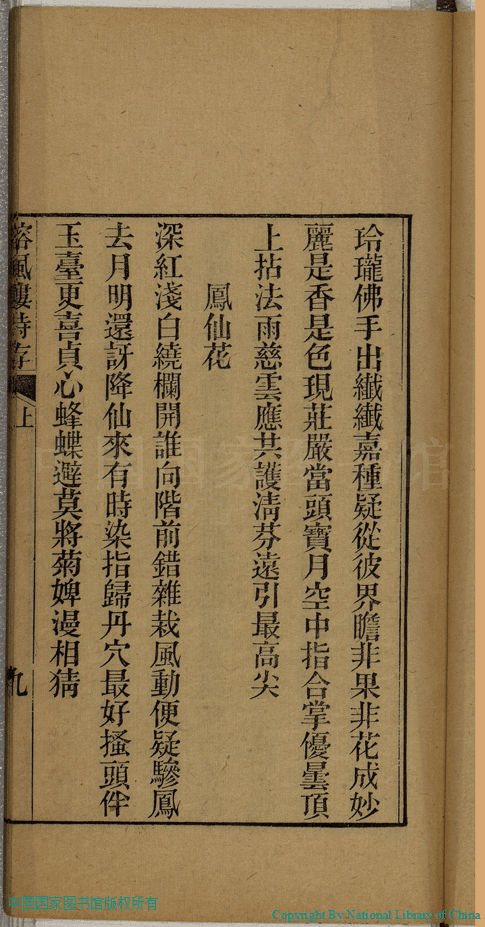 玲瓏佛手出纖纖嘉種疑從彼界瞻非果非花成妙
麗是香是色現莊嚴當頭寶月空中指合掌優曇頂
上拈法雨慈雲應共護淸芬遠引最高尖
鳳仙花
深紅淺白繞欄開誰向階前錯雜栽風動便疑驂鳳
去月明還訝降仙來有時染指歸丹穴最好搔頭伴
玉臺更喜貞心蜂蝶避莫將菊婢漫相猜
風樓詩存
上
九
中国国家图书馆版权所有
Copyright By National Library of China